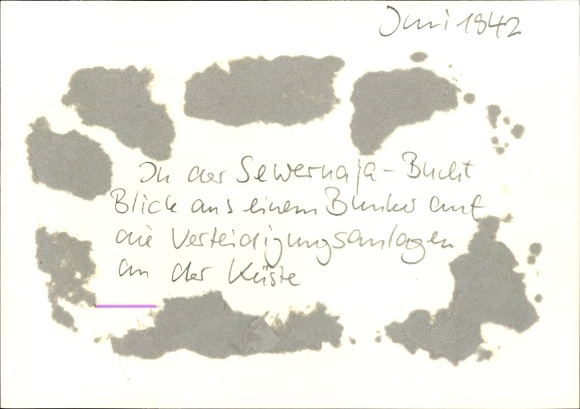 Juni 1842
In der Sewernaja-Bucht
Blick aus einem Bunker auf
die Verteidigungsanlagen
an der Küste